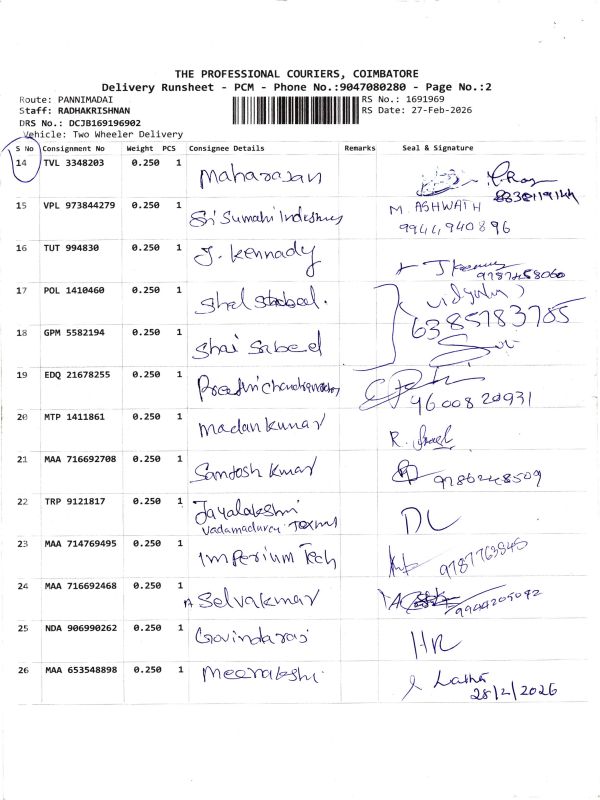 THE PROFESSIONAL COURIERS, COIMBATORE
Delivery Runsheet - PCM - Phone No.:9047080280 - Page No.:2
Route: PANNIMADAI
Staff: RADHAKRISHNAN
DRS No.: DCJB169196902
Vehicle: Two Wheeler Delivery
RS No.: 1691969
RS Date: 27-Feb-2026
S No Consignment No Weight PCS Consignee Details Remarks Seal & Signature
14 TVL 3348203 0.250 1 Maharasan
15 VPL 973844279 0.250 1 Sri Sumahi M. ASHWATH
9944940896
16 TUT 994830 0.250 1 J. Kennady
9787458060
17 POL 1410460 0.250 1
6385783705
18 GPM 5582194 0.250 1 Shai
19 EDQ 21678255 0.250 1
9600820931
20 MTP 1411861 0.250 1 Madankumar R.
21 MAA 716692708 0.250 1 Santosh Kumar 9786248509
22 TRP 9121817 0.250 1 Jayalakshmi DL
Vadamadurey
23 MAA 714769495 0.250 1 Imperium Tech 9787763845
24 MAA 716692468 0.250 1 A Selvakumar 9944205092
25 NDA 906990262 0.250 1 Govindaraj HR
26 MAA 653548898 0.250 1 Meenakshi
28/2/2026